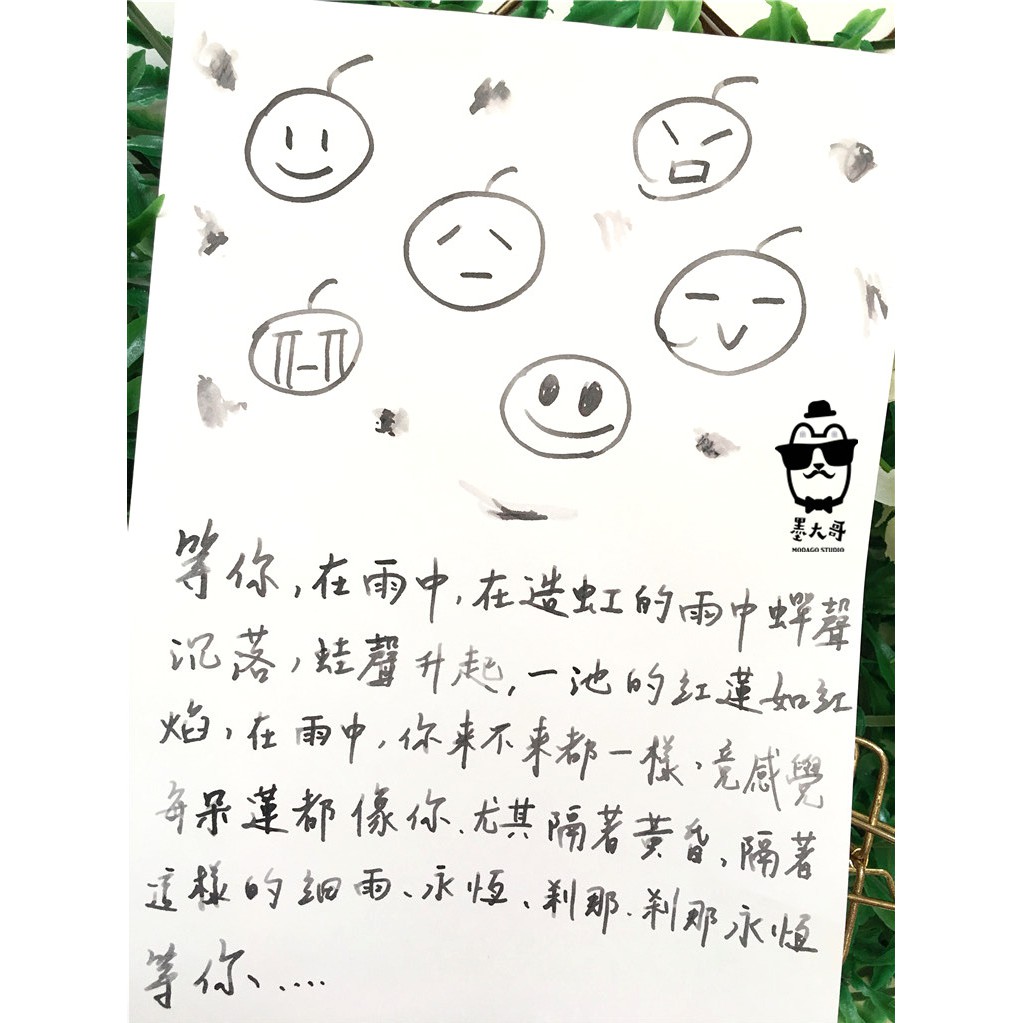 墨大哥
MODAGO STUDIO
等你,在雨中,在造虹的雨中蟬聲
沉落,蛙聲升起,一池的紅蓮如紅
焰,在雨中,你来不来都一樣,竟感覺
每朵蓮都像你.尤其隔著黃昏,隔著
這樣的細雨、永恆、刹那.刹那永恆
等你、....